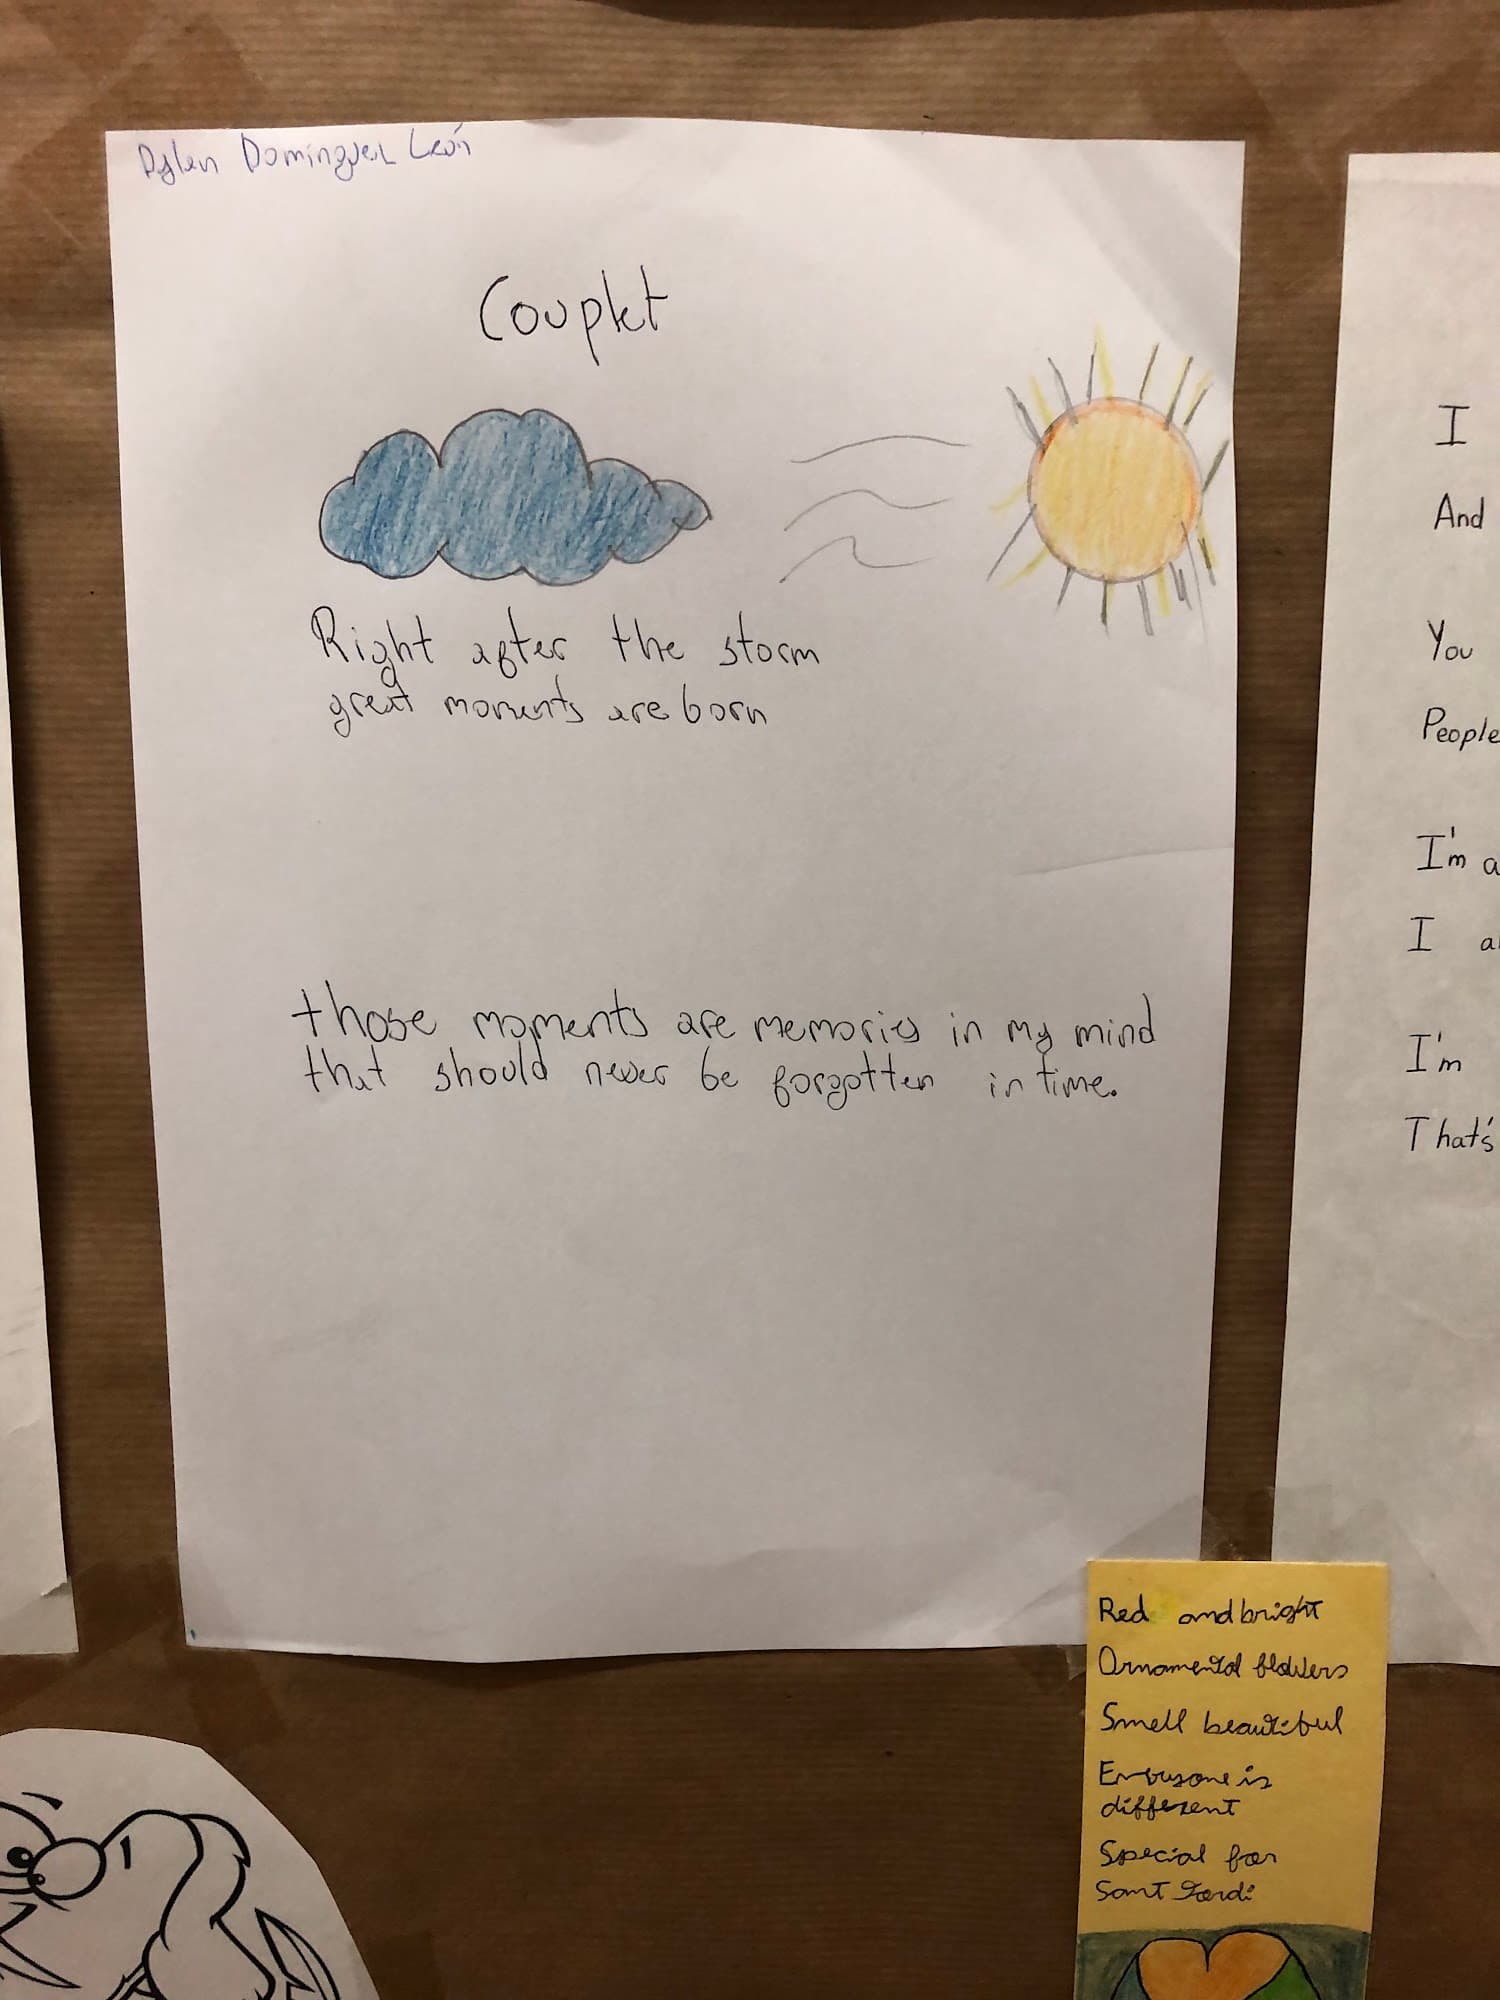 Dylan Dominguez León
Couplet
Right after the storm
great moments are born
those moments are memories in my mind
that should never be forgotten in time.
I
And
You
People
I'm a
I a
I'm
That's
Red and bright
Ornamental flowers
Smell beautiful
Everyone is
different
Special for
Sant Jordi